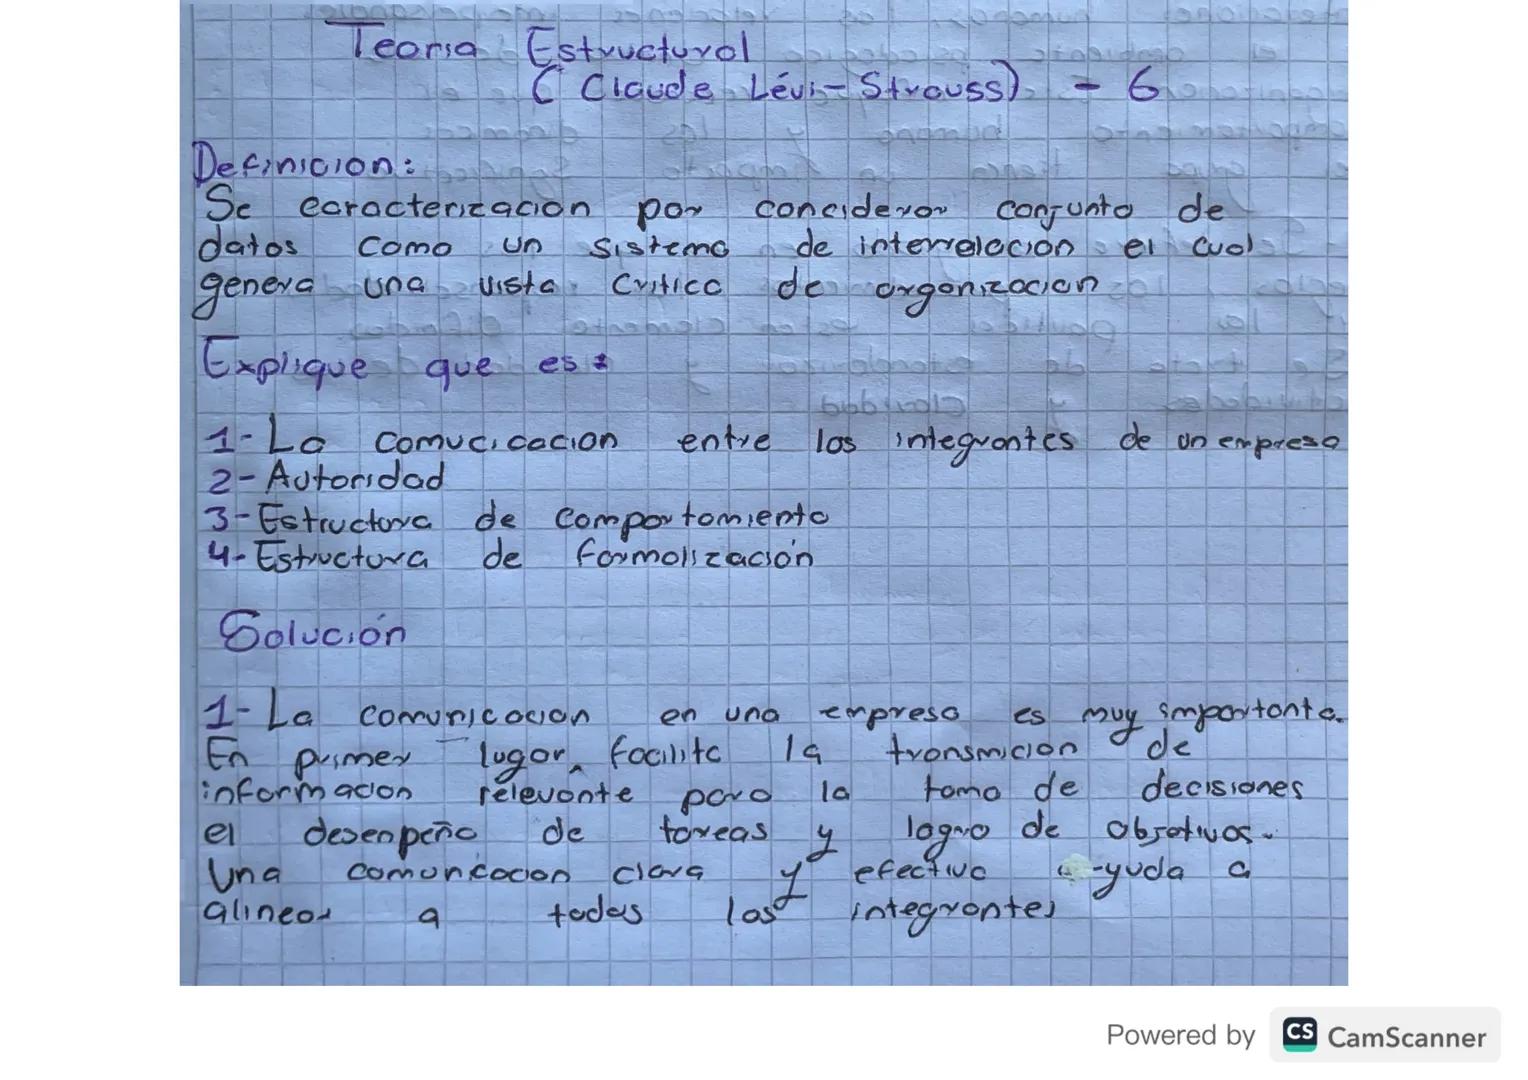 Teoria Estructural
(Claude Lévi-Strauss) - 6
Definicion:
Se caracterizacion por conciderar conjunto de
datos como un sistema de interrelación el cual
genera una vista critica de organizacion
Explique que es:
1- La comucicacion entre los integrantes de un empresa
2- Autoridad
3- Estructura de comportamiento
4- Estructura de formalización
Solución
1- La comunicacion en una empresa es muy importante.
En primer lugar, facilita la transmicion de
informacion relevante para la toma de decisiones
el desenpeño de tareas y logro de objetivos.
Una comunicacion clara y efectiva a-yuda a
alinear a todos los integrantes
Powered by CS CamScanner